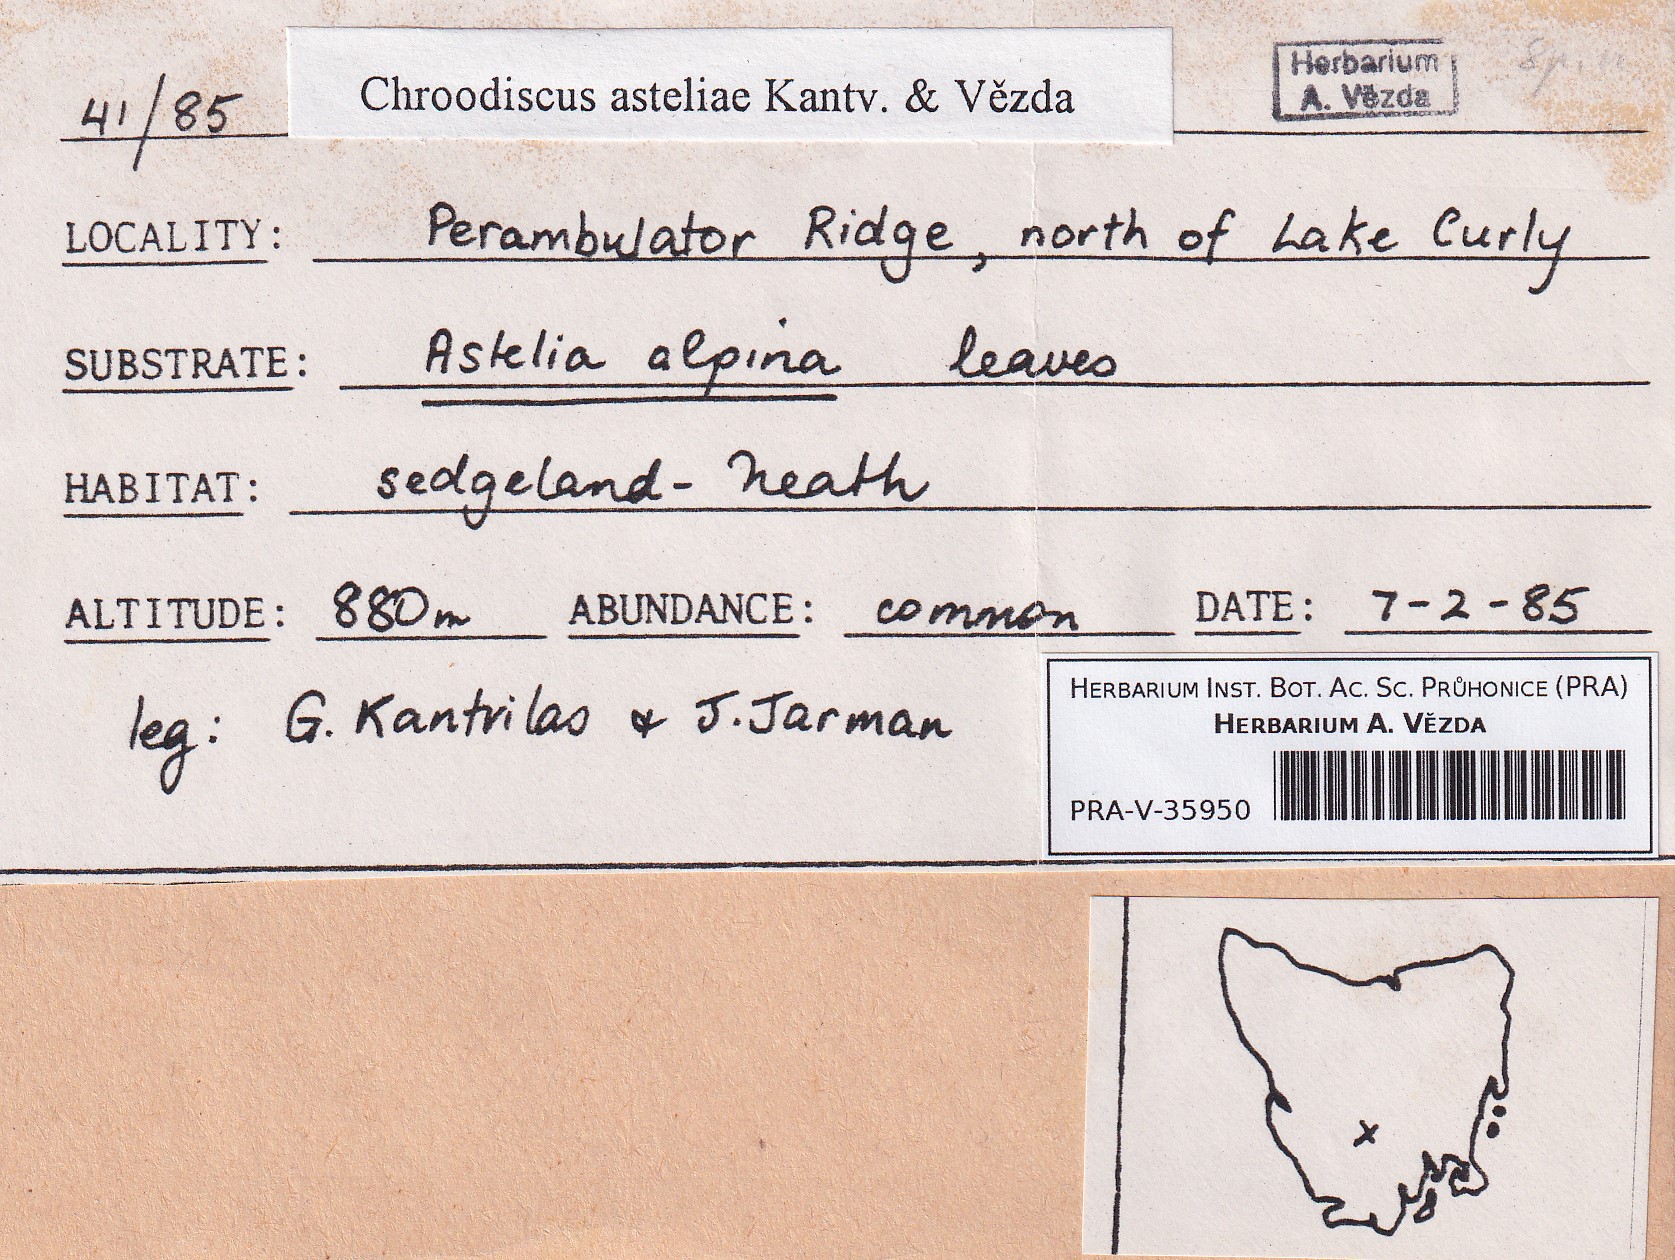 41/85
Chroodiscus asteliae Kantv. & Vězda
Herbarium
A. Vězda
LOCALITY: Perambulator Ridge, north of Lake Curly
SUBSTRATE: Astelia alpina leaves
HABITAT: sedgeland-heath
ALTITUDE: 880m ABUNDANCE: common DATE: 7-2-85
leg: G. Kantvilas & J. Jarman
HERBARIUM INST. BOT. AC. SC. PRŮHONICE (PRA)
HERBARIUM A. VĚZDA
PRA-V-35950
x